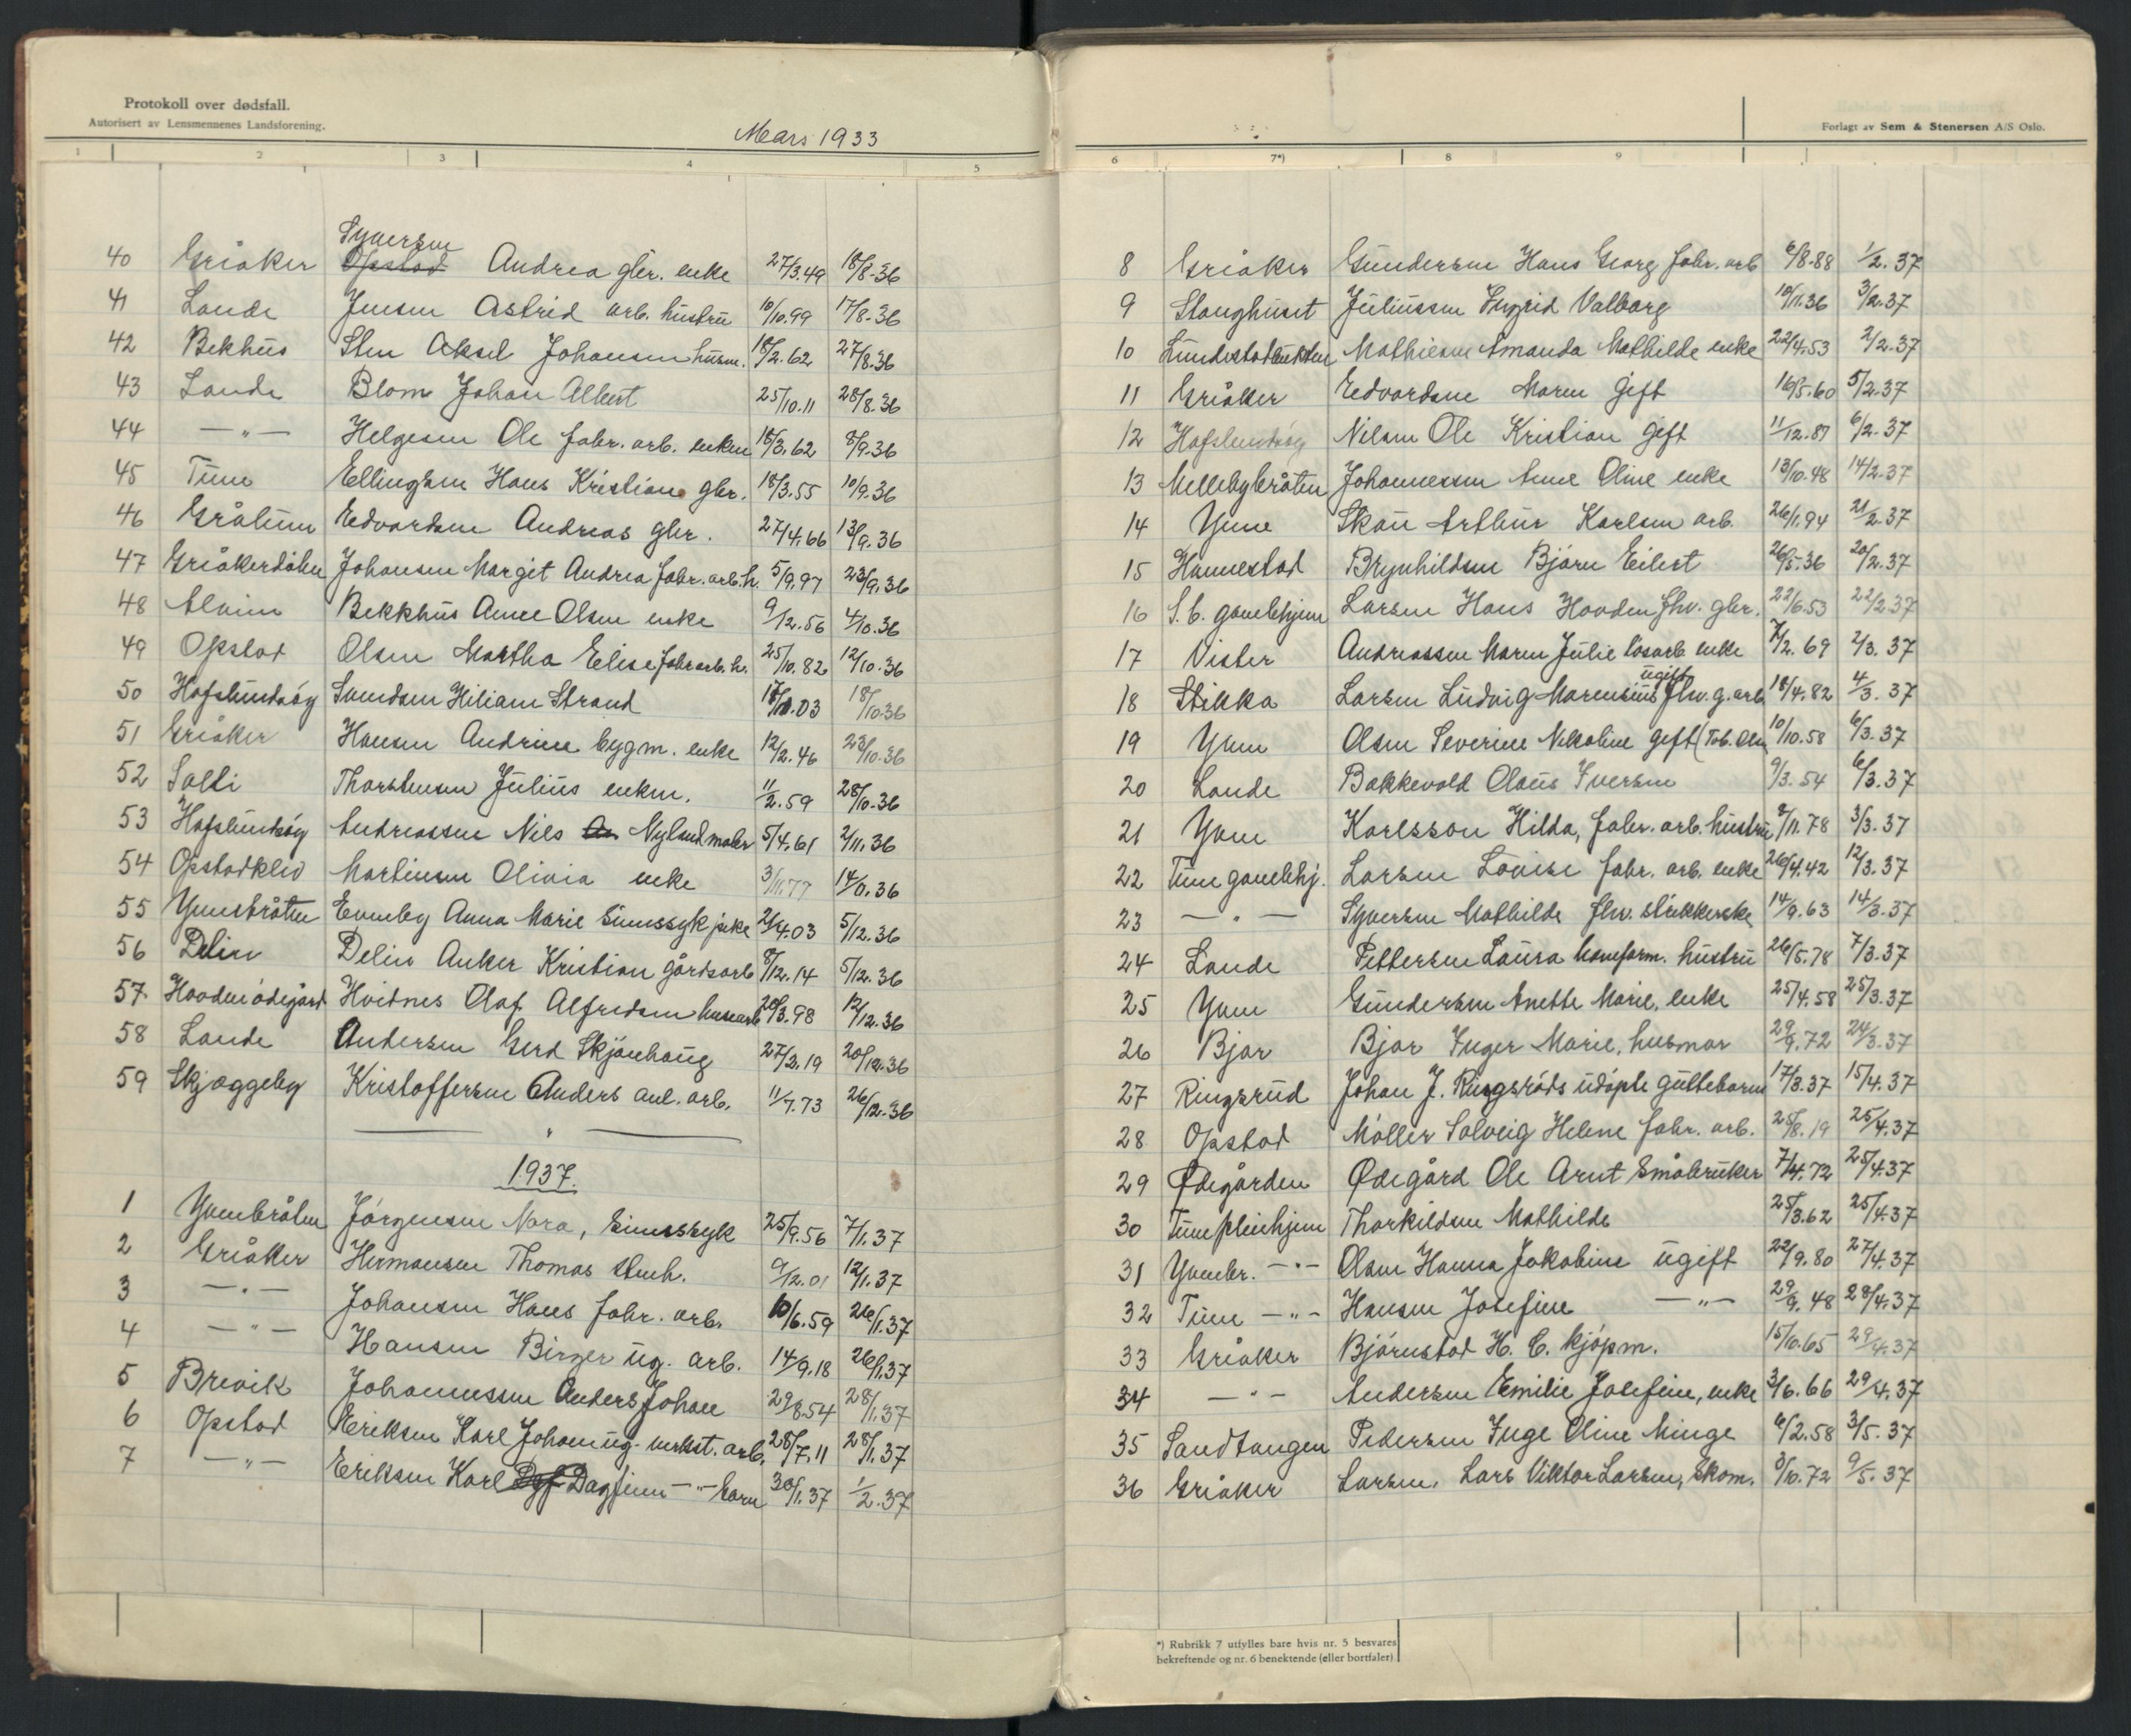 Protokoll over dødsfall.
Autorisert av Lensmennenes Landsforening.
Mars 1933
1 2 3 4 5
Syversen
40 Greåker Opstad Andrea gbr. enke 27/3.49 18/8.36
41 Lande Jensen Astrid arb. hustru 10/10.99 17/8.36
42 Bekhus Sten Aksel Johansen husm. 18/2.62 27/8.36
43 Lande Blom Johan Albert 25/10.11 28/8.36
44 —"— Helgesen Ole fabr. arb. enkem 18/3.62 8/9.36
45 Tune Ellingsen Hans Kristian gbr. 18/3.55 10/9.36
46 Grålum Edvardsen Andreas gbr. 27/4.66 13/9.36
47 Greåkerdalen Johansen Margit Andrea fabr. arb. h. 5/9.97 23/9.36
48 Alvim Bekkhus Anne Olsen enke 9/12.56 4/10.36
49 Opstad Olsen Martha Elise fabr arb. h. 25/10.82 12/10.36
50 Hafslundsøy Svendsen Hiliam Strand 18/10.03 18/10.36
51 Greåker Hansen Andrine bygm. enke 12/2.46 23/10.36
52 Solli Thorstensen Julius enkem. 11/2.59 28/10.36
53 Hafslundsøy Andreassen Nils An Nylund maler 5/4.61 2/11.36
54 Opstadkleiv Martinsen Olivia enke 3/11.77 14/11.36
55 Yvenbråten Evenby Anna Marie sinnssyk pike 21/4.03 5/12.36
56 Delin Delin Anker Kristian gårdsarb 8/12.14 5/12.36
57 Haadenødegård Hvidnes Olaf Alfredsen 20/3.98 12/12.36
58 Lande Andersen Gerd Skjønhaug 27/2.19 20/12.36
59 Skjæggeby Kristoffersen Anders anl. arb. 11/7.73 26/12.36
1937.
1 Yvenbråten Jørgensen Nora, sinnssyk 25/9.56 7/1.37
2 Greåker Hermansen Thomas stuert. 9/12.01 12/1.37
3 —"— Johansen Hans fabr. arb. 10/6.59 26/1.37
4 —"— Hansen Birger ug. arb. 14/9.18 26/1.37
5 Brevik Johannessen Anders Johan 29/8.54 28/1.37
6 Opstad Eriksen Karl Johan ug. verkst. arb. 28/7.11 28/1.37
7 —"— Eriksen Karl Dagfinn —"— barn 30/1.37 1/2.37
Forlagt av Sem & Stenersen A/S Oslo.
6 7*) 8 9
8 Greåker Gundersen Hans Georg fabr. arb 6/8.88 1/2.37
9 Stanghuset Juliussen Ingrid Valborg 10/11.36 3/2.37
10 Mathiesen Amanda Mathilde enke 22/4.53 2/2.37
11 Greåker Edvardsen Maren gift 16/5.60 5/2.37
12 Hafslundsøy Nilsen Ole Kristian gift 11/12.87 6/2.37
13 Mellebybråten Johannessen Anne Oline enke 13/10.48 14/2.37
14 Yven Skau Arthur Karlsen arb. 26/1.94 21/2.37
15 Hannestad Brynhildsen Bjørn Eilert 26/5.36 20/2.37
16 S.b. gamlehjem Larsen Hans Haaden fhv. gbr. 22/6.53 22/2.37
17 Vister Andreassen Maren Julie løsarb. enke 7/2.69 2/3.37
ugift
18 Stikka Larsen Ludvig Marensius fhv. g. arb 18/4.82 4/3.37
19 Yven Olsen Severine Nikoline gift (Tob. Olsen 10/10.58 6/3.37
20 Lande Bakkevold Olaus Iversen 9/3.54 6/3.37
21 Yven Karlsson Hilda, fabr. arb. hustru 2/11.78 3/3.37
22 Tune gamlehj. Larsen Lovise fabr. arb. enke 26/4.42 12/3.37
23 —"— Syversen Mathilde fhv. strikkerske 14/9.63 14/3.37
24 Lande Pettersen Laura kranform. hustru 26/5.78 7/3.37
25 Yven Gundersen Anette Marie, enke 25/4.58 25/3.37
26 Bjar Bjar Inger Marie, husmor 29/9.72 24/3.37
27 Ringsrud Johan J. Ringsrøds udøpte guttebarn 17/3.37 15/4.37
28 Opstad Møller Solveig Helene fabr. arb. 25/8.19 25/4.37
29 Ødegården Ødegård Ole Arnt Småbruker 7/4.72 25/4.37
30 Tune pleiehjem Thorkildsen Mathilde 25/3.62 25/4.37
31 Yvenbr. —"— Olsen Hanna Jakobine ugift 22/9.80 27/4.37
32 Tune —"— Hansen Josefine —"— 29/9.48 28/4.37
33 Greåker Bjørnstad H. C. kjøpm. 15/10.65 29/4.37
34 —"— Andersen Emilie Josefine, enke 3/6.66 29/4.37
35 Sandtangen Pedersen Inge Oline Minge 6/2.58 3/5.37
36 Greåker Larsen, Lars Viktor Larsen, Skom. 8/10.72 9/5.37
*) Rubrikk 7 utfylles bare hvis nr. 5 besvares
bekreftende og nr. 6 benektende (eller bortfaler)